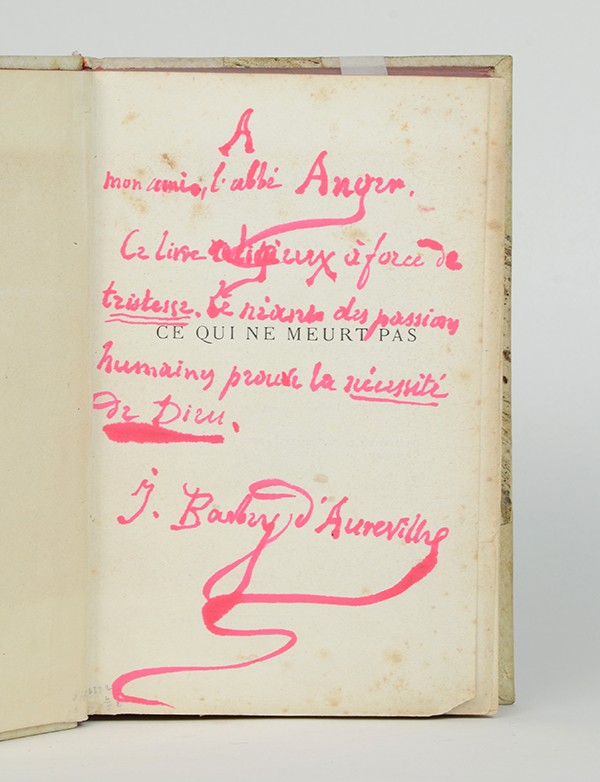 A
mon ami, l'abbé Anger.
Ce livre religieux à force de
tristesse. Le néant des passions
CE QUI NE MEURT PAS
humaines prouve la nécessité
de Dieu.
J. Barbey d'Aurevilly